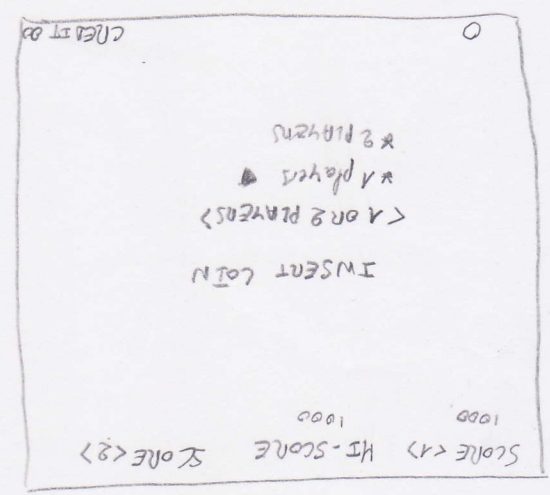 SCORE <1> HI-SCORE SCORE <2>
1000 1000
INSERT COIN
<1 OR 2 PLAYERS>
*1 players
*2 PLAYERS
0 CREDIT 00